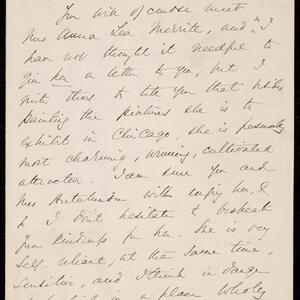 You will of course meet
Mrs Anna Lea Merritt, and I
have not thought it needful to
give her a letter to you, but I
write this to tell you that besides
painting the pictures she is to
exhibit in Chicago, she is personally
most charming, winning, cultivated
attractive I am sure you and
Mrs will enjoy her, &
so I don't hesitate to bespeak
your kindness for her. She is very
self reliant, at the same time,
sensitive, and I think in danger
a place wholly